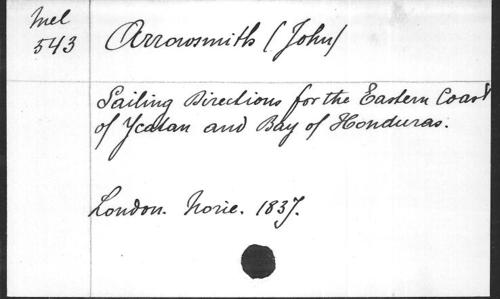 Mel
543
Arrowsmith (John)
Sailing Directions for the Eastern Coast
of Ycatan and Bay of Honduras.
London. Norie. 1837.